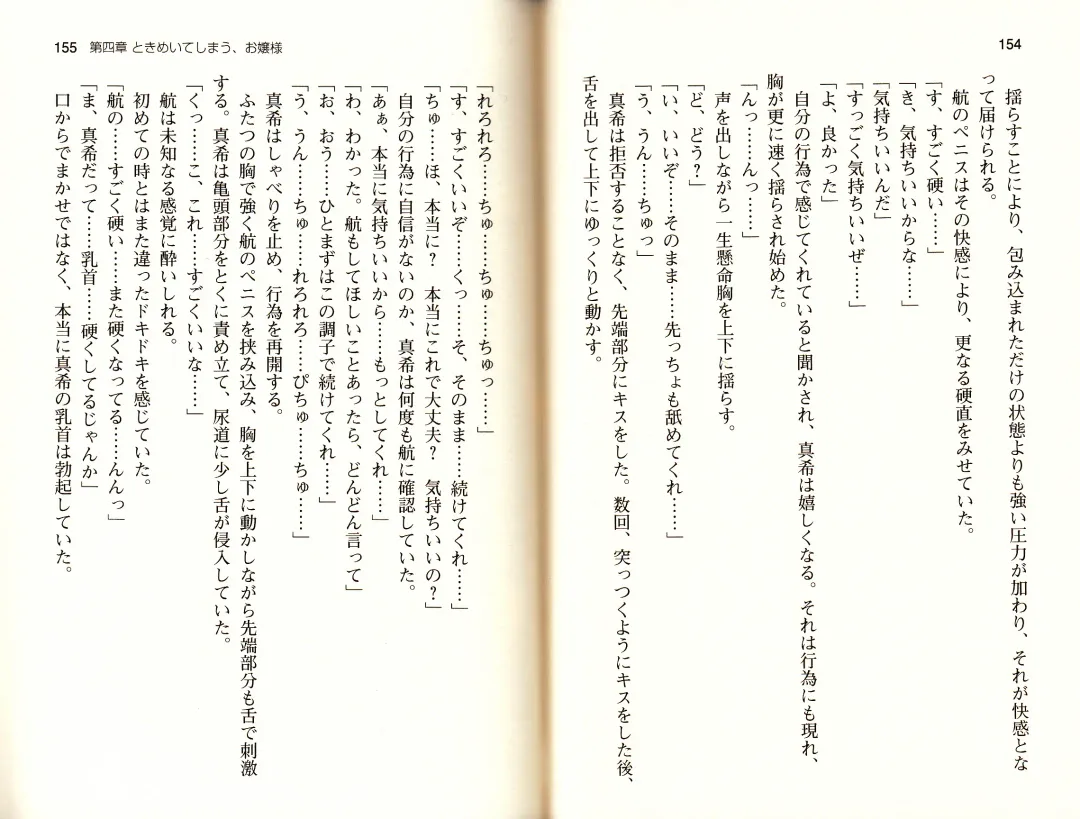 154
揺らすことにより、包み込まれただけの状態よりも強い圧力が加わり、それが快感とな
って届けられる。
航のペニスはその快感により、更なる硬直をみせていた。
「す、すごく硬い……」
「き、気持ちいいからな……」
「気持ちいいんだ」
「すっごく気持ちいいぜ……」
「よ、良かった」
自分の行為で感じてくれていると聞かされ、真希は嬉しくなる。それは行為にも現れ、
胸が更に速く揺らされ始めた。
「んっ……んっ……」
声を出しながら一生懸命胸を上下に揺らす。
「ど、どう？」
「い、いいぞ……そのまま……先っちょも舐めてくれ……」
「う、うん……ちゅっ」
真希は拒否することなく、先端部分にキスをした。数回、突っつくようにキスをした後、
舌を出して上下にゆっくりと動かす。
155 第四章 ときめいてしまう、お嬢様
「れろれろ……ちゅ……ちゅ……ちゅっ……」
「す、すごくいいぞ……くっ……そ、そのまま……続けてくれ……」
「ちゅ……ほ、本当に？　本当にこれで大丈夫？　気持ちいいの？」
自分の行為に自信がないのか、真希は何度も航に確認していた。
「あぁ、本当に気持ちいいから……もっとしてくれ……」
「わ、わかった。航もしてほしいことあったら、どんどん言って」
「お、おう……ひとまずはこの調子で続けてくれ……」
「う、うん……ちゅ……れろれろ……ぴちゅ……ちゅ……」
真希はしゃべりを止め、行為を再開する。
ふたつの胸で強く航のペニスを挟み込み、胸を上下に動かしながら先端部分も舌で刺激
する。真希は亀頭部分をとくに責め立て、尿道に少し舌が侵入していた。
「くっ……こ、これ……すごくいいな……」
航は未知なる感覚に酔いしれる。
初めての時とはまた違ったドキドキを感じていた。
「航の……すごく硬い……また硬くなってる……んんっ」
「ま、真希だって……乳首……硬くしてるじゃんか」
口からでまかせではなく、本当に真希の乳首は勃起していた。